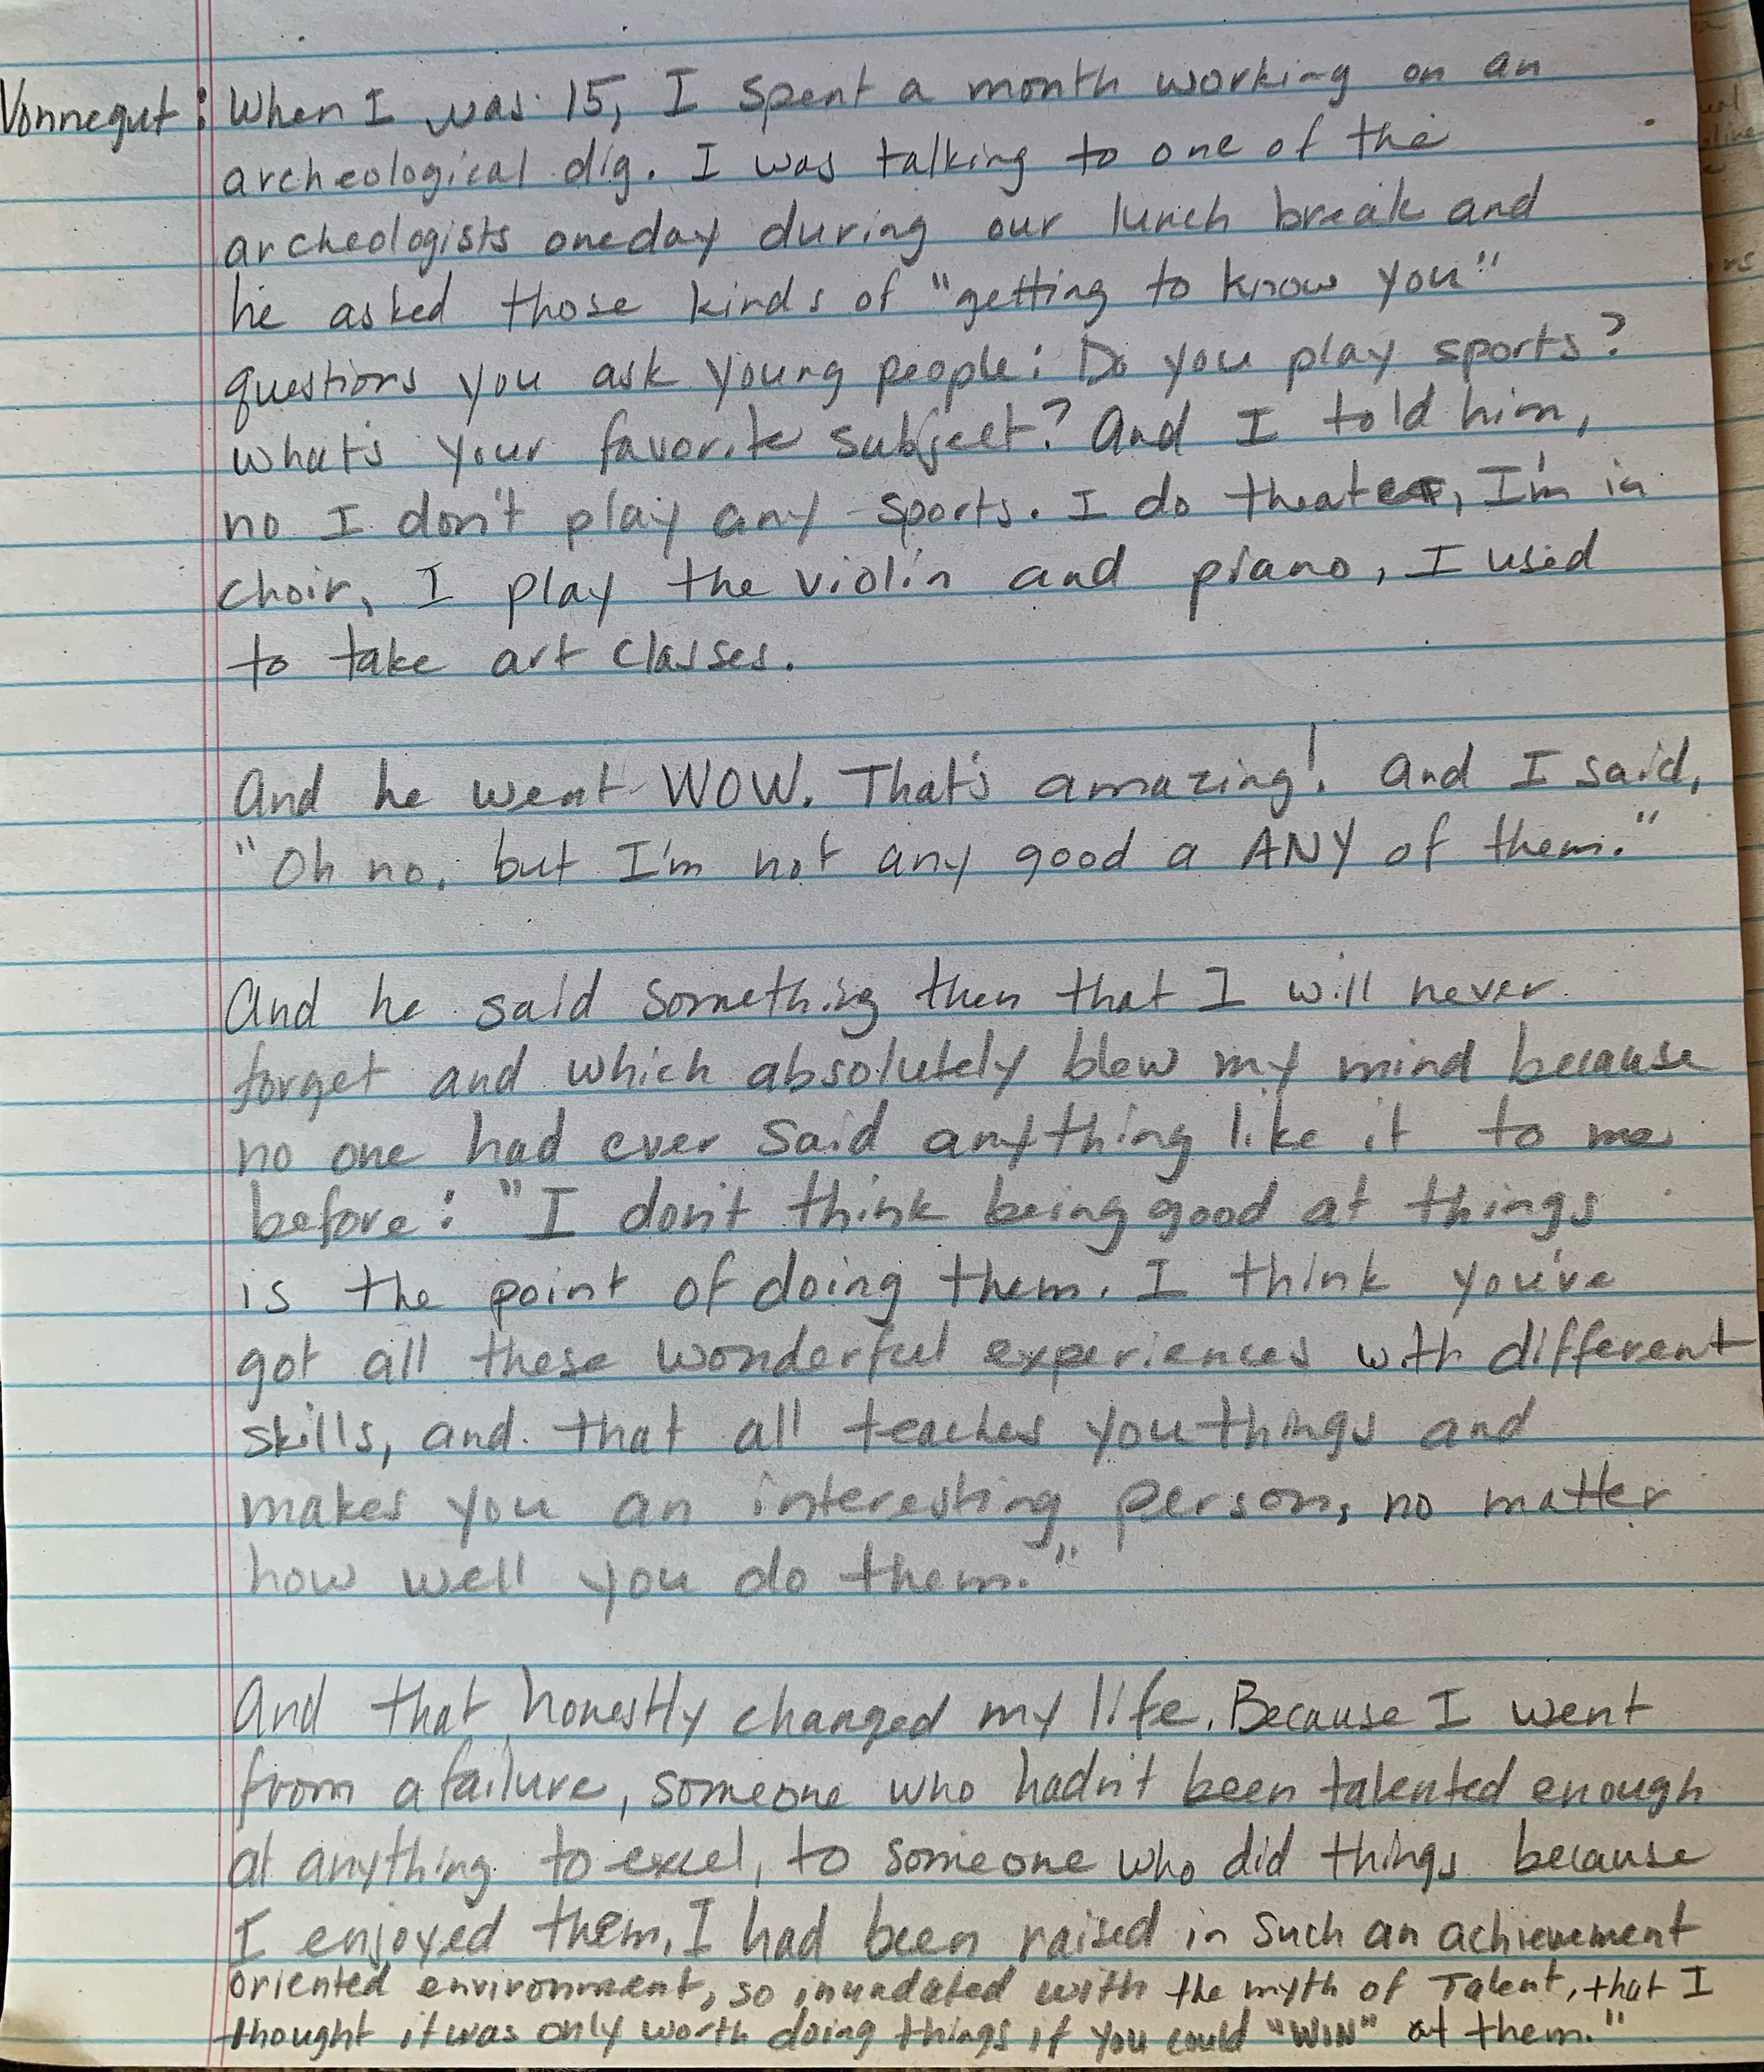 Vonnegut: When I was 15, I spent a month working on an
archeological dig. I was talking to one of the
archeologists oneday during our lunch break and
he asked those kinds of "getting to know you"
questions you ask young people: Do you play sports?
what's your favorite subject? And I told him,
no I don't play any sports. I do theater, I'm in
choir, I play the violin and piano, I used
to take art classes.
And he went WOW. That's amazing! And I said,
"Oh no, but I'm not any good a ANY of them."
And he said something then that I will never
forget and which absolutely blew my mind because
no one had ever said anything like it to me
before: "I don't think being good at things
is the point of doing them. I think you've
got all these wonderful experiences with different
skills, and that all teaches you things and
makes you an interesting person, no matter
how well you do them."
And that honestly changed my life. Because I went
from a failure, someone who hadn't been talented enough
at anything to excel, to someone who did things because
I enjoyed them. I had been raised in such an achievement
oriented environment, so inundated with the myth of Talent, that I
thought it was only worth doing things if you could "WIN" at them."